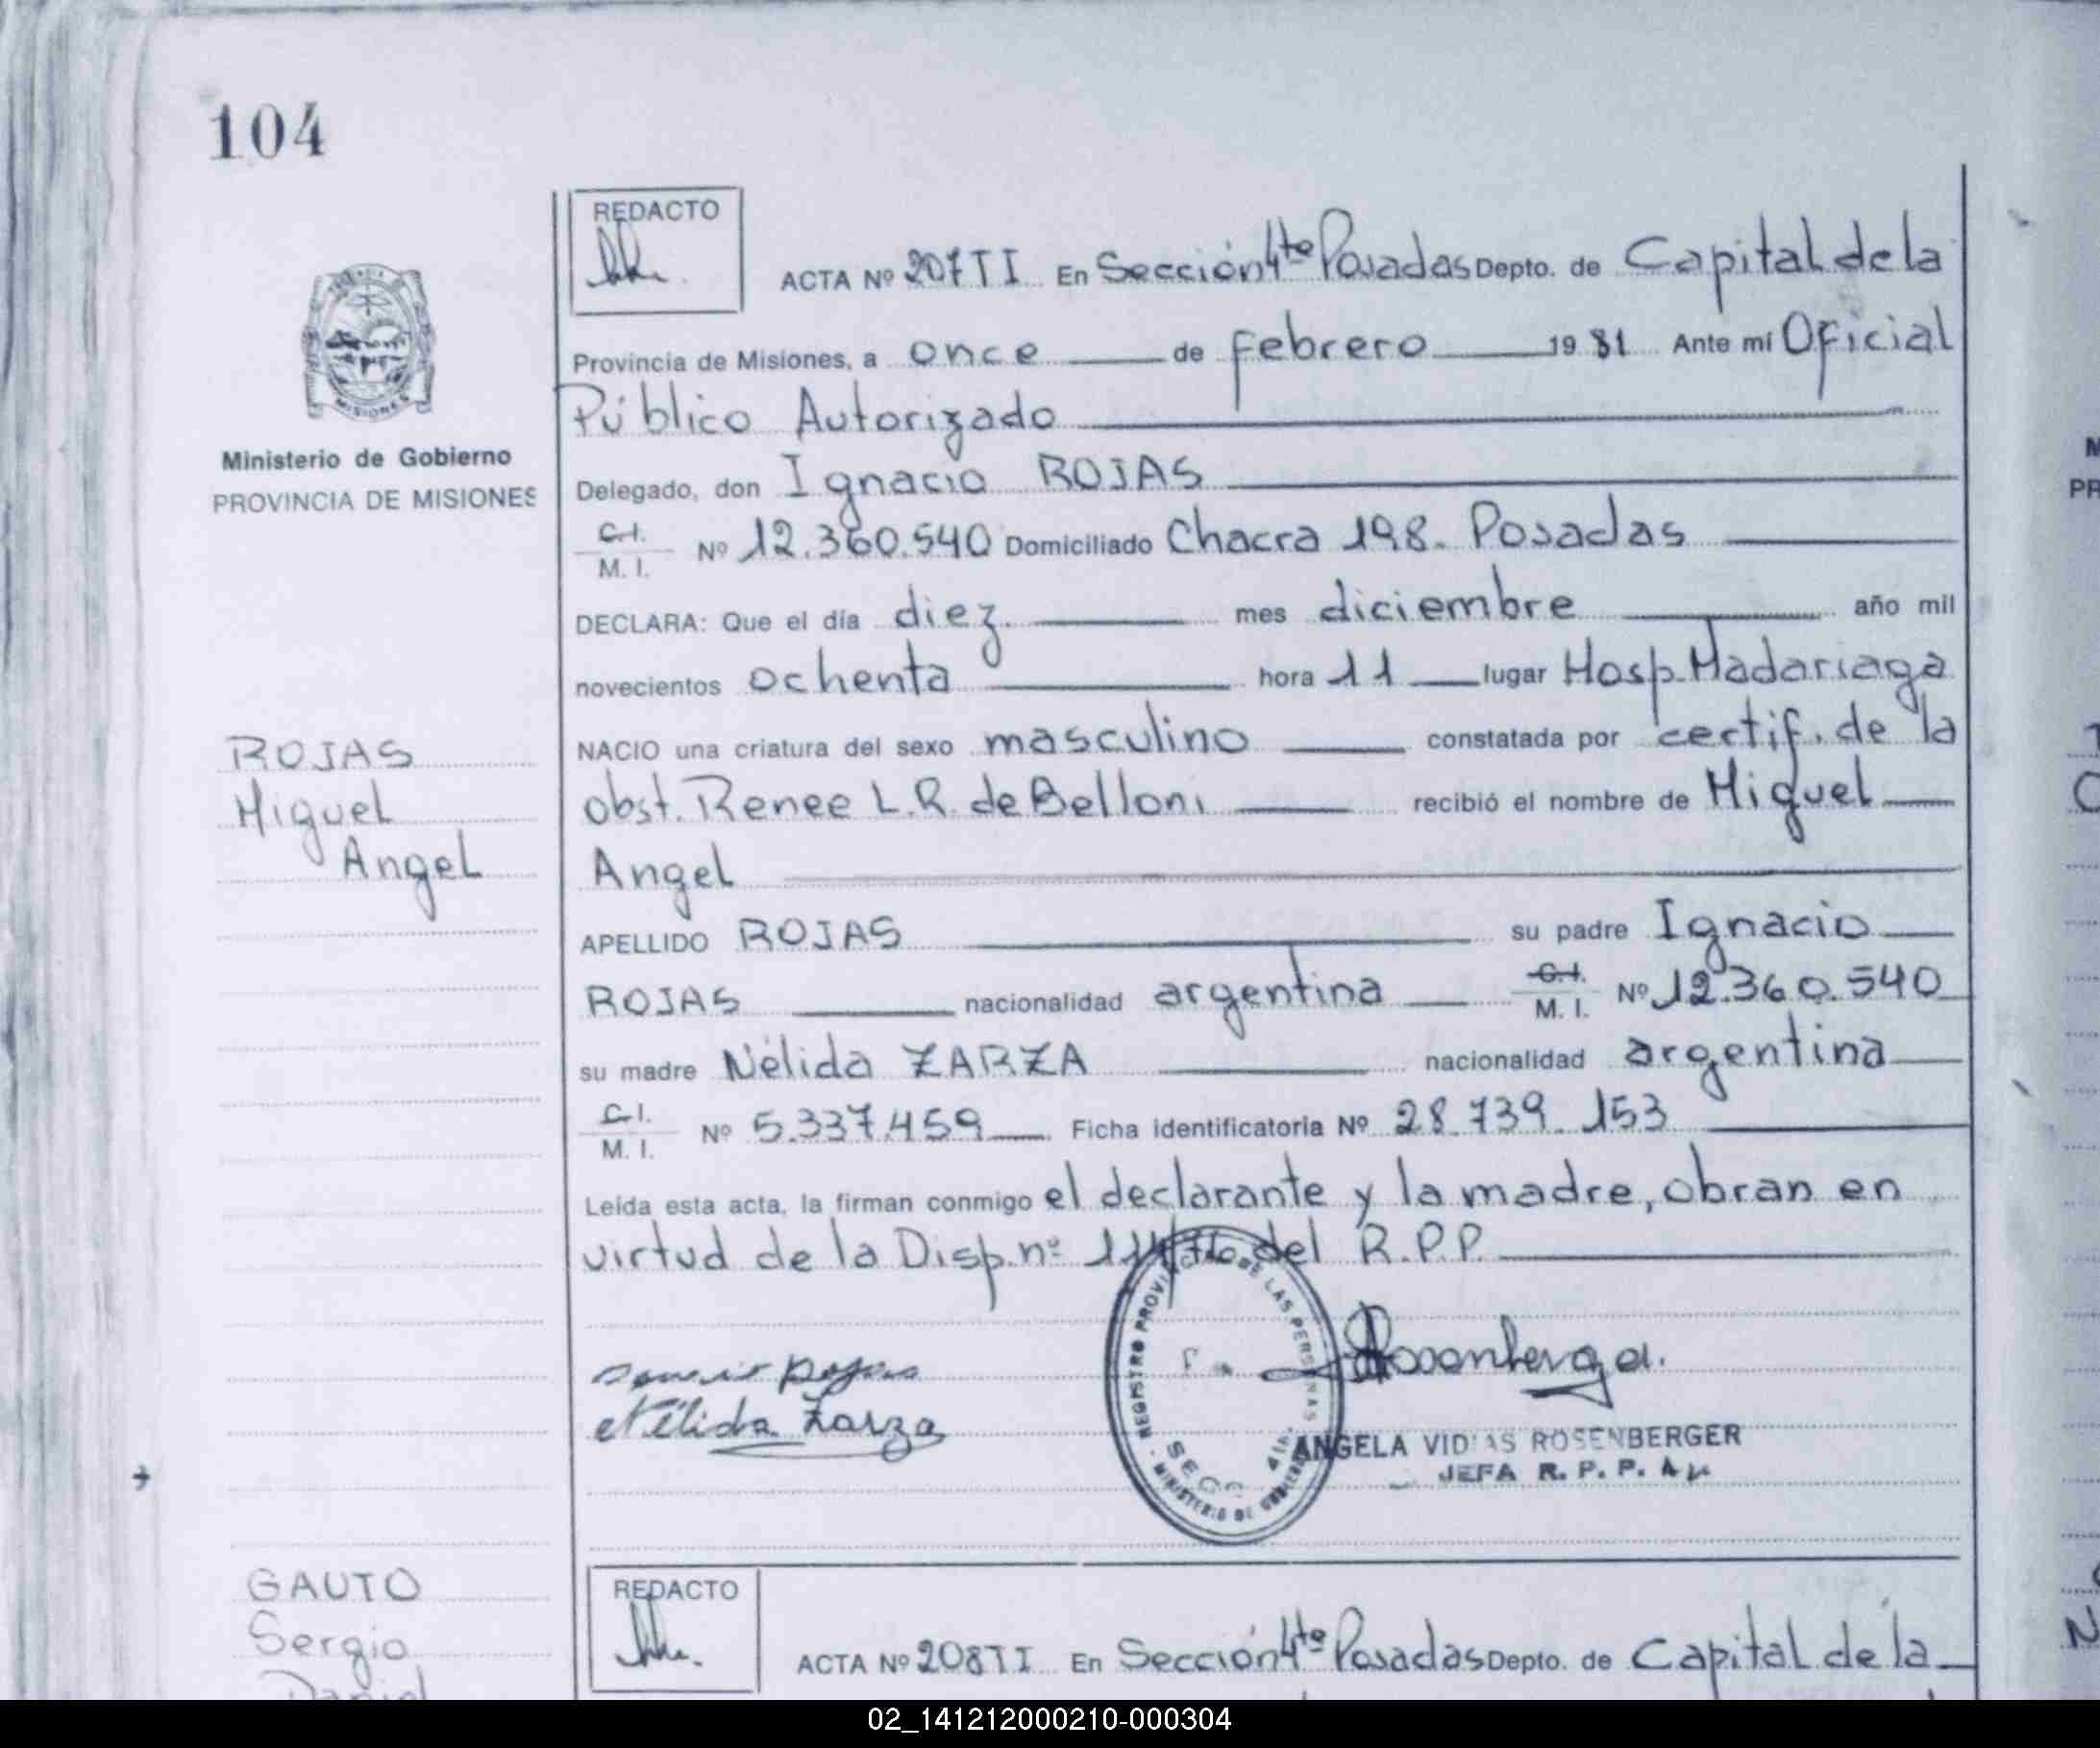 104
REDACTO
ACTA Nº 207 TI En Sección 4ta Posadas Depto. de Capital de la
Provincia de Misiones, a once de febrero 19 81 Ante mí Oficial
Público Autorizado
Ministerio de Gobierno
PROVINCIA DE MISIONES
MISIONES
Delegado, don Ignacio ROJAS
C.I.
M. I. Nº 12.360.540 Domiciliado Chacra 198. Posadas
DECLARA: Que el día diez. mes diciembre año mil
novecientos ochenta hora 11 lugar Hosp. Madariaga
ROJAS
Miguel
Angel
NACIO una criatura del sexo masculino constatada por certif. de la
obst. Renee L.R. de Belloni recibió el nombre de Miguel
Angel
APELLIDO ROJAS su padre Ignacio
ROJAS nacionalidad argentina C.I. M. I. Nº 12.360.540
su madre Nélida ZARZA nacionalidad argentina
C.I.
M. I. Nº 5.337.459 Ficha identificatoria Nº 28.739.153
Leída esta acta, la firman conmigo el declarante y la madre, obran en
virtud de la Disp. nº del R.P.P.
Nélida Zarza
REGISTRO PROVINCIAL DE LAS PERSONAS
SECC. 4ta.
MINISTERIO DE GOBIERNO
ANGELA ROSENBERGER
JEFA R. P. P.
GAUTO
Sergio
Daniel
REDACTO
ACTA Nº 208 TI En Sección 4ta Posadas Depto. de Capital de la
02_141212000210-000304